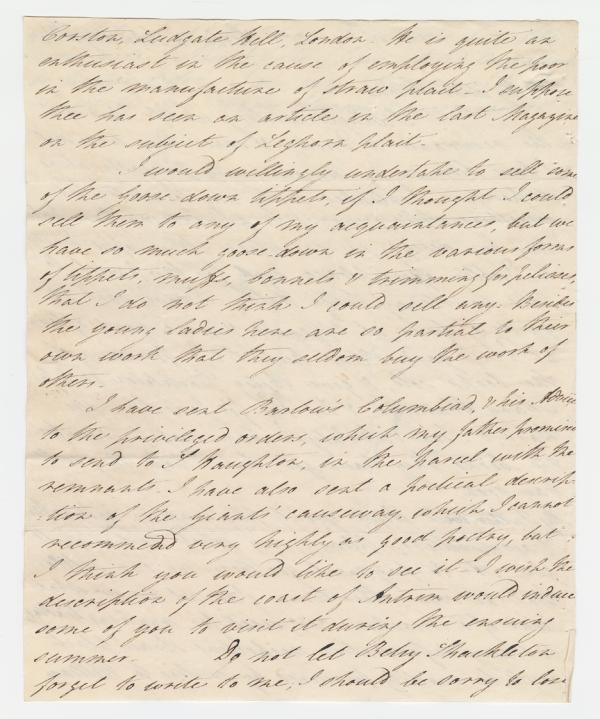 Corston, Ludgate Hill, London. He is quite an
enthusiast in the cause of employing the poor
in the manufacture of straw plait - I suppose
thee has seen an article in the last Magazine
on the subject of Leghorn plait.
I would willingly undertake to sell some
of the Goose-down tippets, if I thought I could
sell them to any of my acquaintances, but we
have so much goose-down in the various forms
of tippets, muffs, bonnets & trimming for pelisses,
that I do not think I could sell any. Besides
the young ladies here are so partial to their
own work that they seldom buy the work of
others.
I have sent Barlow's Columbiad, & his Advice
to the privileged orders, which my father promised
to send to J Haughton, in the parcel with the
remnants. I have also sent a poetical descrip
:tion of the Giants' causeway, which I cannot
recommend very highly as good poetry, but
I think you would like to see it - I wish the
description of the coast of Antrim would induce
some of you to visit it during the ensuing
summer. Do not let Betsy Shackleton
forget to write to me, I should be sorry to lose